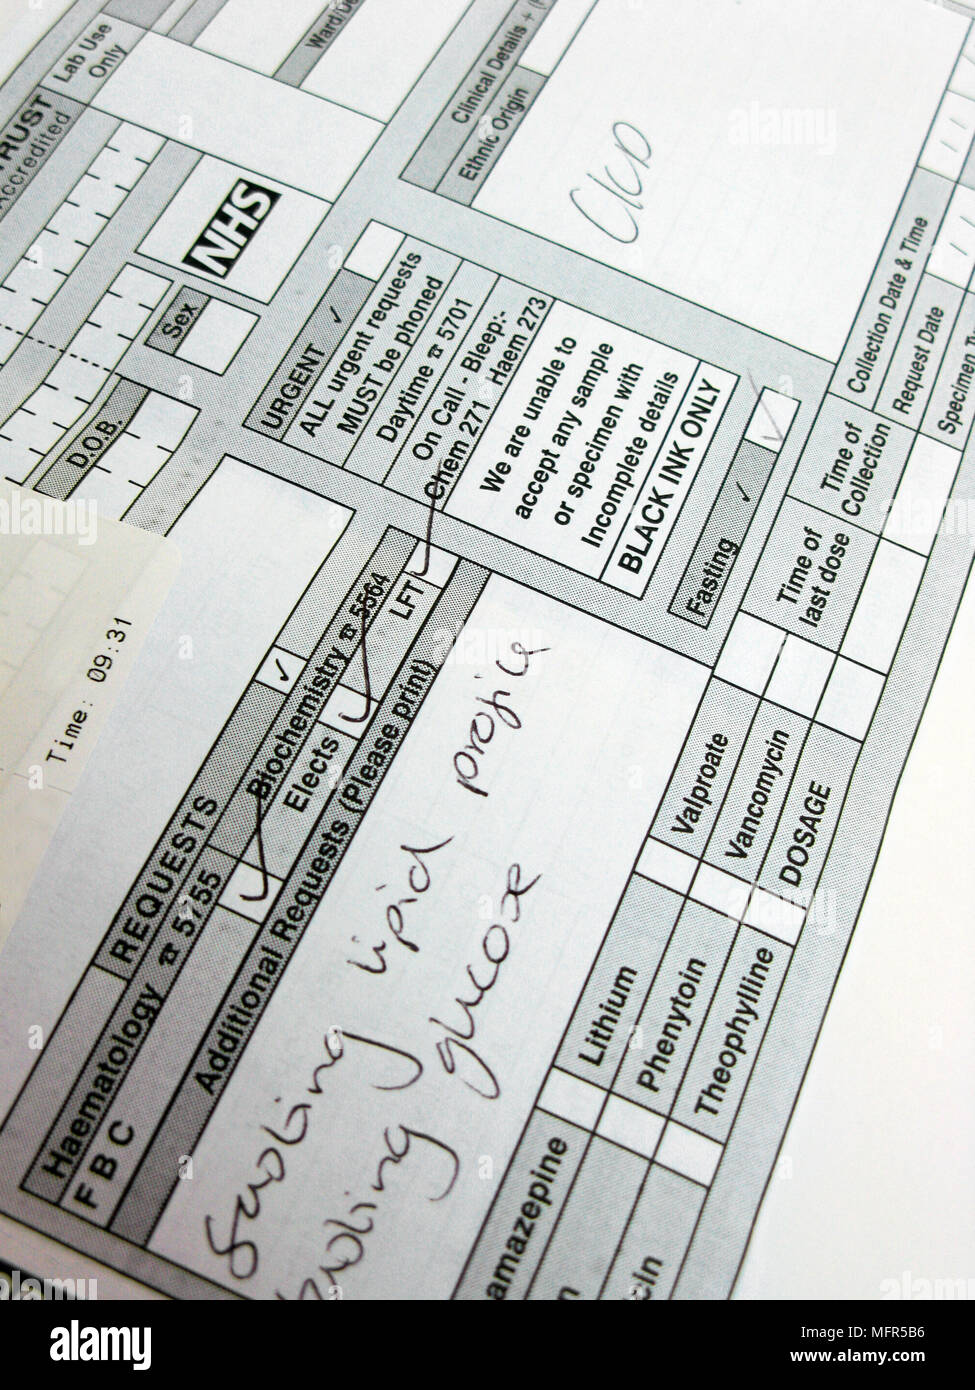 TRUST
Accredited
Lab Use
Only
NHS
Sex
D.O.B.
Clinical Details +
Ethnic Origin
URGENT ✓
ALL urgent requests
MUST be phoned
Daytime ☎ 5701
On Call - Bleep:-
Chem 271 - Haem 273
We are unable to
accept any sample
or specimen with
Incomplete details
BLACK INK ONLY
Fasting ✓
Collection Date & Time
Request Date
Time: 09:31
REQUESTS ✓
Haematology ☎ 5755
Biochemistry ☎ 5564
F B C
Elects
LFT
Additional Requests (Please print)
lipid profile
glucose
Time of
Collection
Time of
last dose
Valproate
Vancomycin
DOSAGE
Lithium
Phenytoin
Theophylline
amazepine
cin
alamy
MFR5B6
www.alamy.com